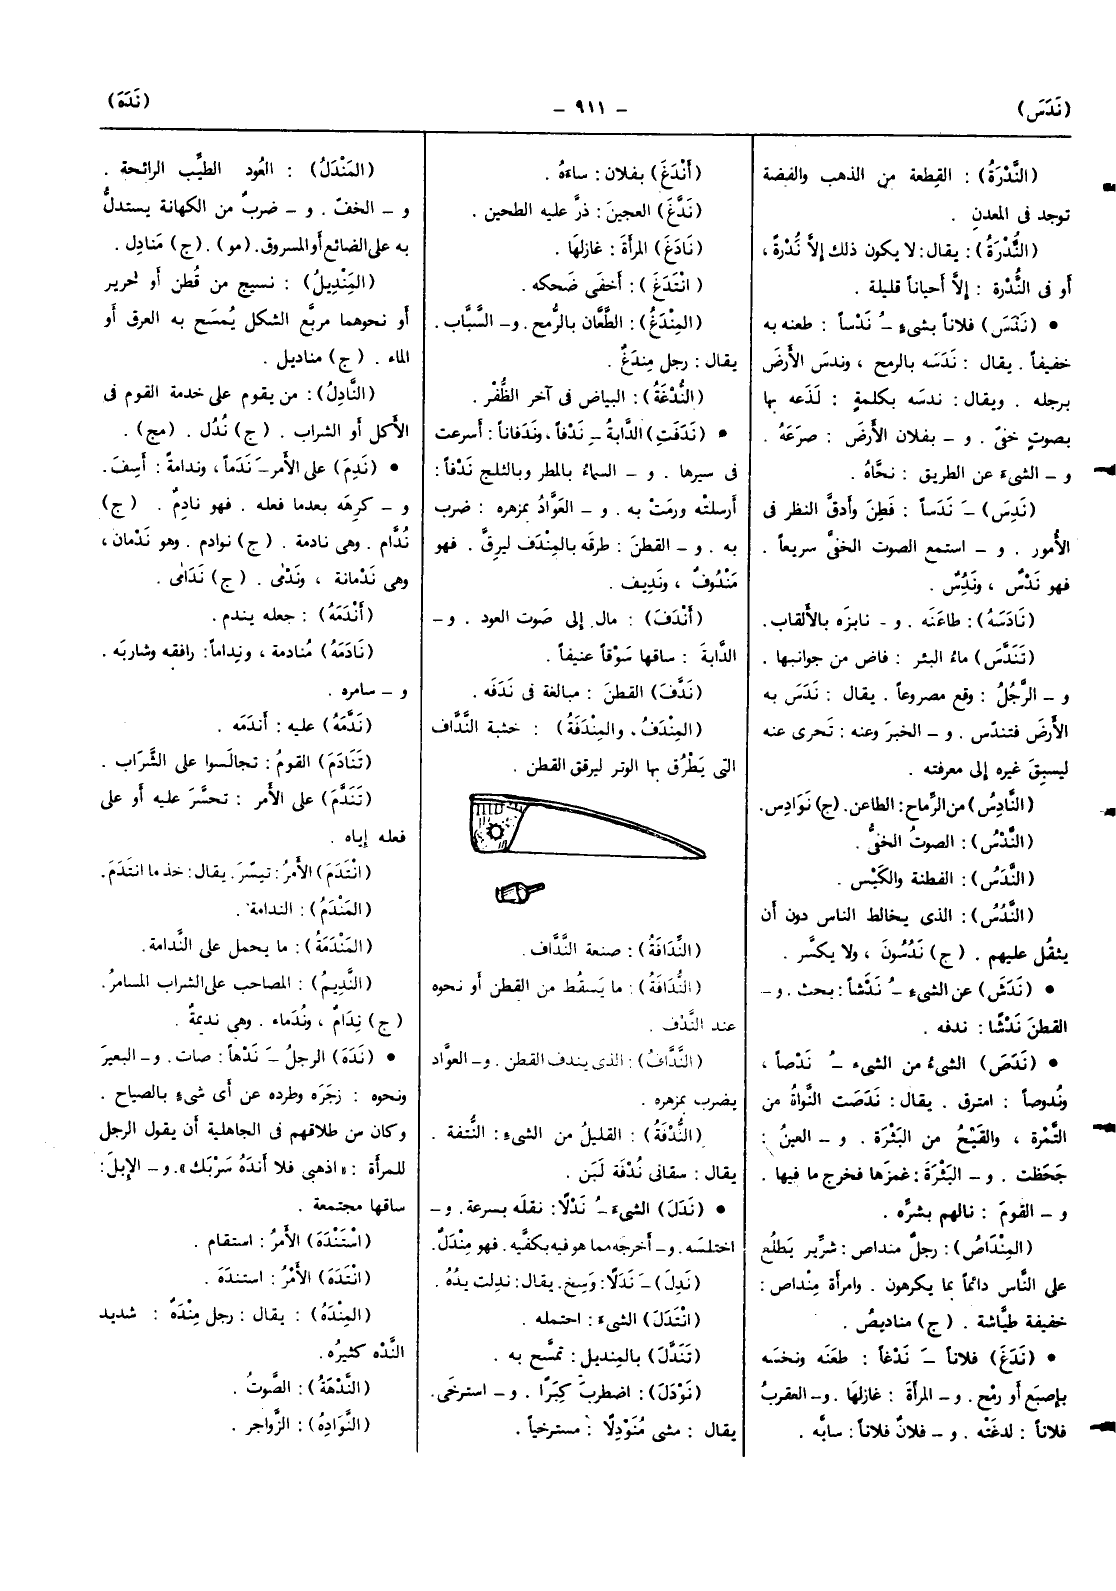 (نَدَسَ)
– ٩١١ –
(نَدَهَ)
(النَّدْرَةُ) : القِطعة من الذهب والفضة
توجد فى المعدنِ .
(النُّدْرَةُ) : يقال : لا يكون ذلك إلاَّ نُدْرةً ،
أو فى النُّدْرة : إلاَّ أحياناً قليلة .
• (نَدَسَ) فلاناً بشىءٍ ـُ نَدْساً : طعنه به
خفيفاً . يقال : نَدَسَه بالرمح ، وندسَ الأرضَ
برجله . ويقال : ندسَه بكلمةٍ : لَذَعه بها
بصوتٍ خفىّ . و – بفلان الأَرضَ : صرَعَهُ .
و – الشىءَ عن الطريق : نحَّاهُ .
(نَدِسَ) ـَ نَدَساً : فَطِنَ وأدقَّ النظر فى
الأُمور . و – استمع الصوت الخفىَّ سريعاً .
فهو نَدْسٌ ، ونَدِسٌ .
(نَادَسَهُ) : طاعَنَه . و – نابزَه بالأَلقاب .
(تَنَدَّسَ) ماءُ البئر : فاض من جوانبها .
و – الرَّجُلُ : وقع مصروعاً . يقال : نَدَسَ به
الأَرضَ فتندّس . و – الخبرَ وعنه : تَحرى عنه
ليسبِقَ غيره إلى معرفته .
(النَّادِسُ) من الرِّماح : الطاعن . (ج) نَوَادِس .
(النَّدْسُ) : الصوتُ الخفىُّ .
(النَّدَسُ) : الفطنة والكَيْس .
(النَّدُسُ) : الذى يخالط الناس دون أن
يثقُل عليهم . (ج) نَدُسُونَ ، ولا يكسَّر .
• (نَدَشَ) عن الشىءِ ـُ نَدْشاً : بحث . و –
القطنَ نَدْشًا : ندفه .
• (نَدَصَ) الشىءُ من الشىء ـُ نَدْصاً ،
ونُدوصاً : امترق . يقال : نَدَصَت النَّواةُ من
التَّمْرة ، والقَيْحُ من البَثْرَة . و – العينُ :
جَحَظت . و – البَثْرَةَ : غمزَها فخرج ما فيها .
و – القومَ : نالهم بشرَّه .
(المِنْدَاصُ) : رجلٌ منداص : شرِّير يَطلُع
على النَّاس دائماً بما يكرهون . وامرأة مِنْداص :
خفيفة طيَّاشة . (ج) مناديصُ .
• (نَدَغَ) فلاناً ـَ نَدْغاً : طعَنَه ونخسَه
بإصبَع أو رمْح . و – المرأةَ : غازلها . و – العقربُ
فلاناً : لدغَتْه . و – فلانٌ فلاناً : سابَّه .
(أَنْدَغَ) بفلان : ساءَهُ .
(نَدَّغَ) العجينَ : ذرَّ عليه الطحين .
(نَادَغَ) المرأةَ : غازلها .
(انْتَدَغَ) : أخفَى ضَحكه .
(المِنْدَغُ) : الطَّعَّان بالرُّمح . و – السَّبَّاب .
يقال : رجل مِندَغٌ .
(النُّدْغَةُ) : البياض فى آخر الظُّفْر .
• (نَدَفَتِ) الدَّابةُ ـِ نَدْفاً ، ونَدَفاناً : أسرعت
فى سيرها . و – السماءُ بالمطر وبالثلج نَدْفاً :
أرسلتْه ورمَتْ به . و – العَوَّادُ بمزهره : ضرب
به . و – القطنَ : طرقَه بالمِنْدَف ليرِقَّ . فهو
مَنْدُوفٌ ، ونَدِيف .
(أَنْدَفَ) : مال إلى صَوت العود . و –
الدَّابةَ : ساقها سَوْقاً عنيفاً .
(نَدَّفَ) القطنَ : مبالغة فى نَدَفَه .
(المِنْدَفُ ، والمِنْدَفَةُ) : خشبة النَّدَّاف
التى يَطْرُق بها الوتر ليرقق القطن .
(النِّدَافَةُ) : صنعة النَّدَّاف .
(النُّدَافَةُ) : ما يَسقُط من القطن أو نحوه
عند النَّدْف .
(النَّدَّافُ) : الذى يندف القطن . و – العوَّاد
يضرب بمزهره .
(النُّدْفَةُ) : القليل من الشىءِ : النُّتفة .
يقال : سقانى نُدْفَة لَبَن .
• (نَدَلَ) الشىءَ ـُ نَدْلًا : نقلَه بسرعة . و –
اختلسَه . و – أخرجه مما هو فيه بكفَّيه . فهو مِنْدَلٌ .
(نَدِلَ) ـَ نَدَلًا : وَسِخَ . يقال : نَدِلت يدُهُ .
(انْتَدَلَ) الشىءَ : احتمله .
(تَنَدَّلَ) بالمِنديل : تمسَّح به .
(نَوْدَلَ) : اضطربَ كِبَرًا . و – استرخَى .
يقال : مشى مُنَوْدِلًا : مسترخياً .
(المَنْدَلُ) : العُود الطيِّب الرائحة .
و – الخفّ . و – ضربٌ من الكهانة يستدلُّ
به على الضائع أو المسروق . (مو) . (ج) مَنادِل .
(المِنْدِيلُ) : نسيج من قُطن أو حرير
أو نحوهما مربَّع الشكل يُمسَح به العرق أو
الماء . (ج) مناديل .
(النَّادِلُ) : من يقوم على خدمة القوم فى
الأكل أو الشراب . (ج) نُدُل . (مج) .
• (نَدِمَ) على الأمر ـَ نَدَماً ، وندامةً : أَسِفَ .
و – كرِهَه بعدما فعله . فهو نادِمٌ . (ج)
نُدَّام . وهى نادمة . (ج) نوادم . وهو نَدْمان ،
وهى نَدْمانة ، ونَدْمَى . (ج) نَدَامَى .
(أَنْدَمَهُ) : جعله يندم .
(نَادَمَهُ) مُنادمة ، ونِداماً : رافقه وشاربَه .
و – سامره .
(نَدَّمَهُ) عليه : أندَمَه .
(تَنَادَمَ) القومُ : تجالَسوا على الشَّراب .
(تَنَدَّمَ) على الأَمر : تحسَّرَ عليه أو على
فعله إياه .
(انْتَدَمَ) الأَمرُ : تيسّرَ . يقال : خذ ما انتَدَمَ .
(المَنْدَمُ) : الندامة .
(المَنْدَمَةُ) : ما يحمل على النَّدامة .
(النَّدِيمُ) : المصاحب على الشراب المسامرُ .
(ج) نِدَامٌ ، ونُدَماء . وهى نديمةٌ .
• (نَدَهَ) الرجلُ ـَ نَدْهاً : صات . و – البعيرَ
ونحوه : زجَرَه وطرده عن أى شىءٍ بالصياح .
وكان من طلاقهم فى الجاهلية أن يقول الرجل
للمرأة : « اذهبى فلا أندَهُ سَرْبَك » . و – الإبلَ :
ساقها مجتمعة .
(اسْتَنْدَهَ) الأمرُ : استقام .
(انْتَدَهَ) الأَمْرُ : استندَهَ .
(المِنْدَهُ) : يقال : رجل مِنْدَهٌ : شديد
النَّدْه كثيرُه .
(النَّدْهَةُ) : الصَّوتُ .
(النَّوَادِهُ) : الزَّواجر .